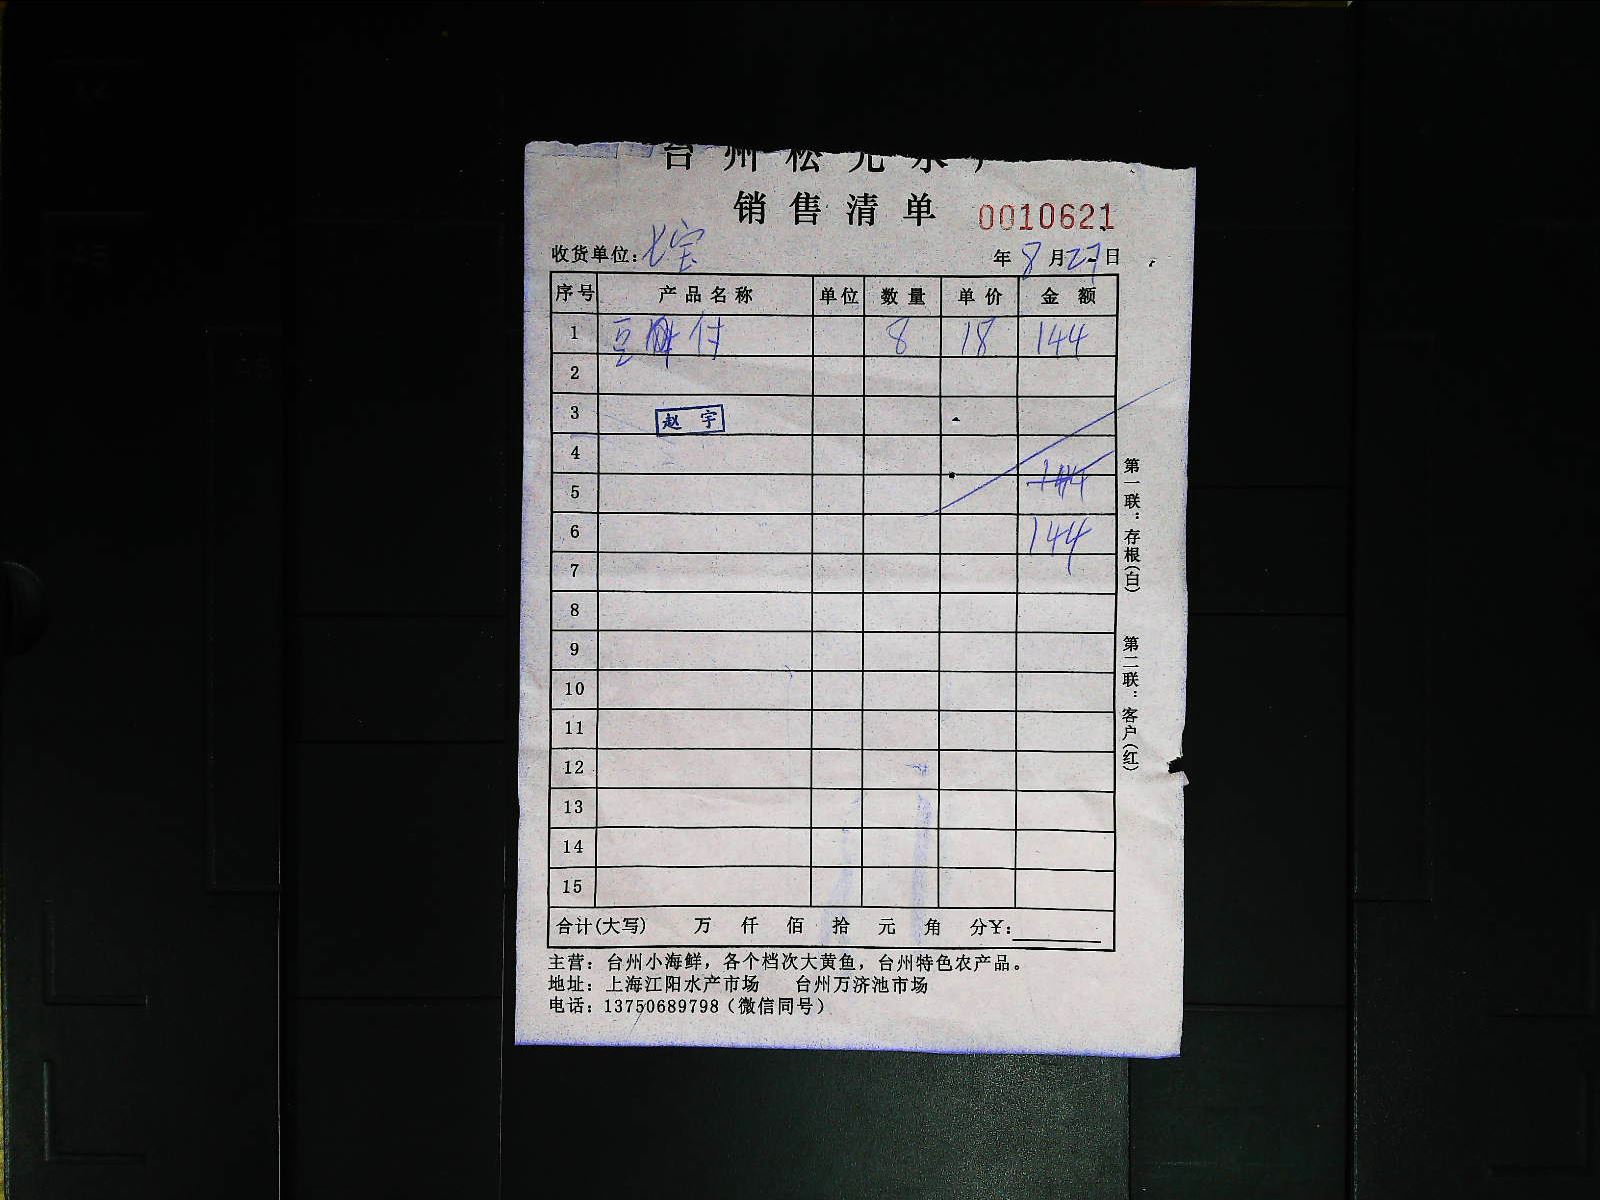 台州松元水产
销售清单 0010621
收货单位：七宝 年8月27日
序号 产品名称 单位 数量 单价 金额
1 豆 付 8 18 144
2
3 赵宇
4
5 144
6 144
7
8
9
10
11
12
13
14
15
合计(大写) 万 仟 佰 拾 元 角 分¥:
主营：台州小海鲜，各个档次大黄鱼，台州特色农产品。
地址：上海江阳水产市场 台州万济池市场
电话：13750689798（微信同号）
第一联：存根(白)
第二联：客户(红)